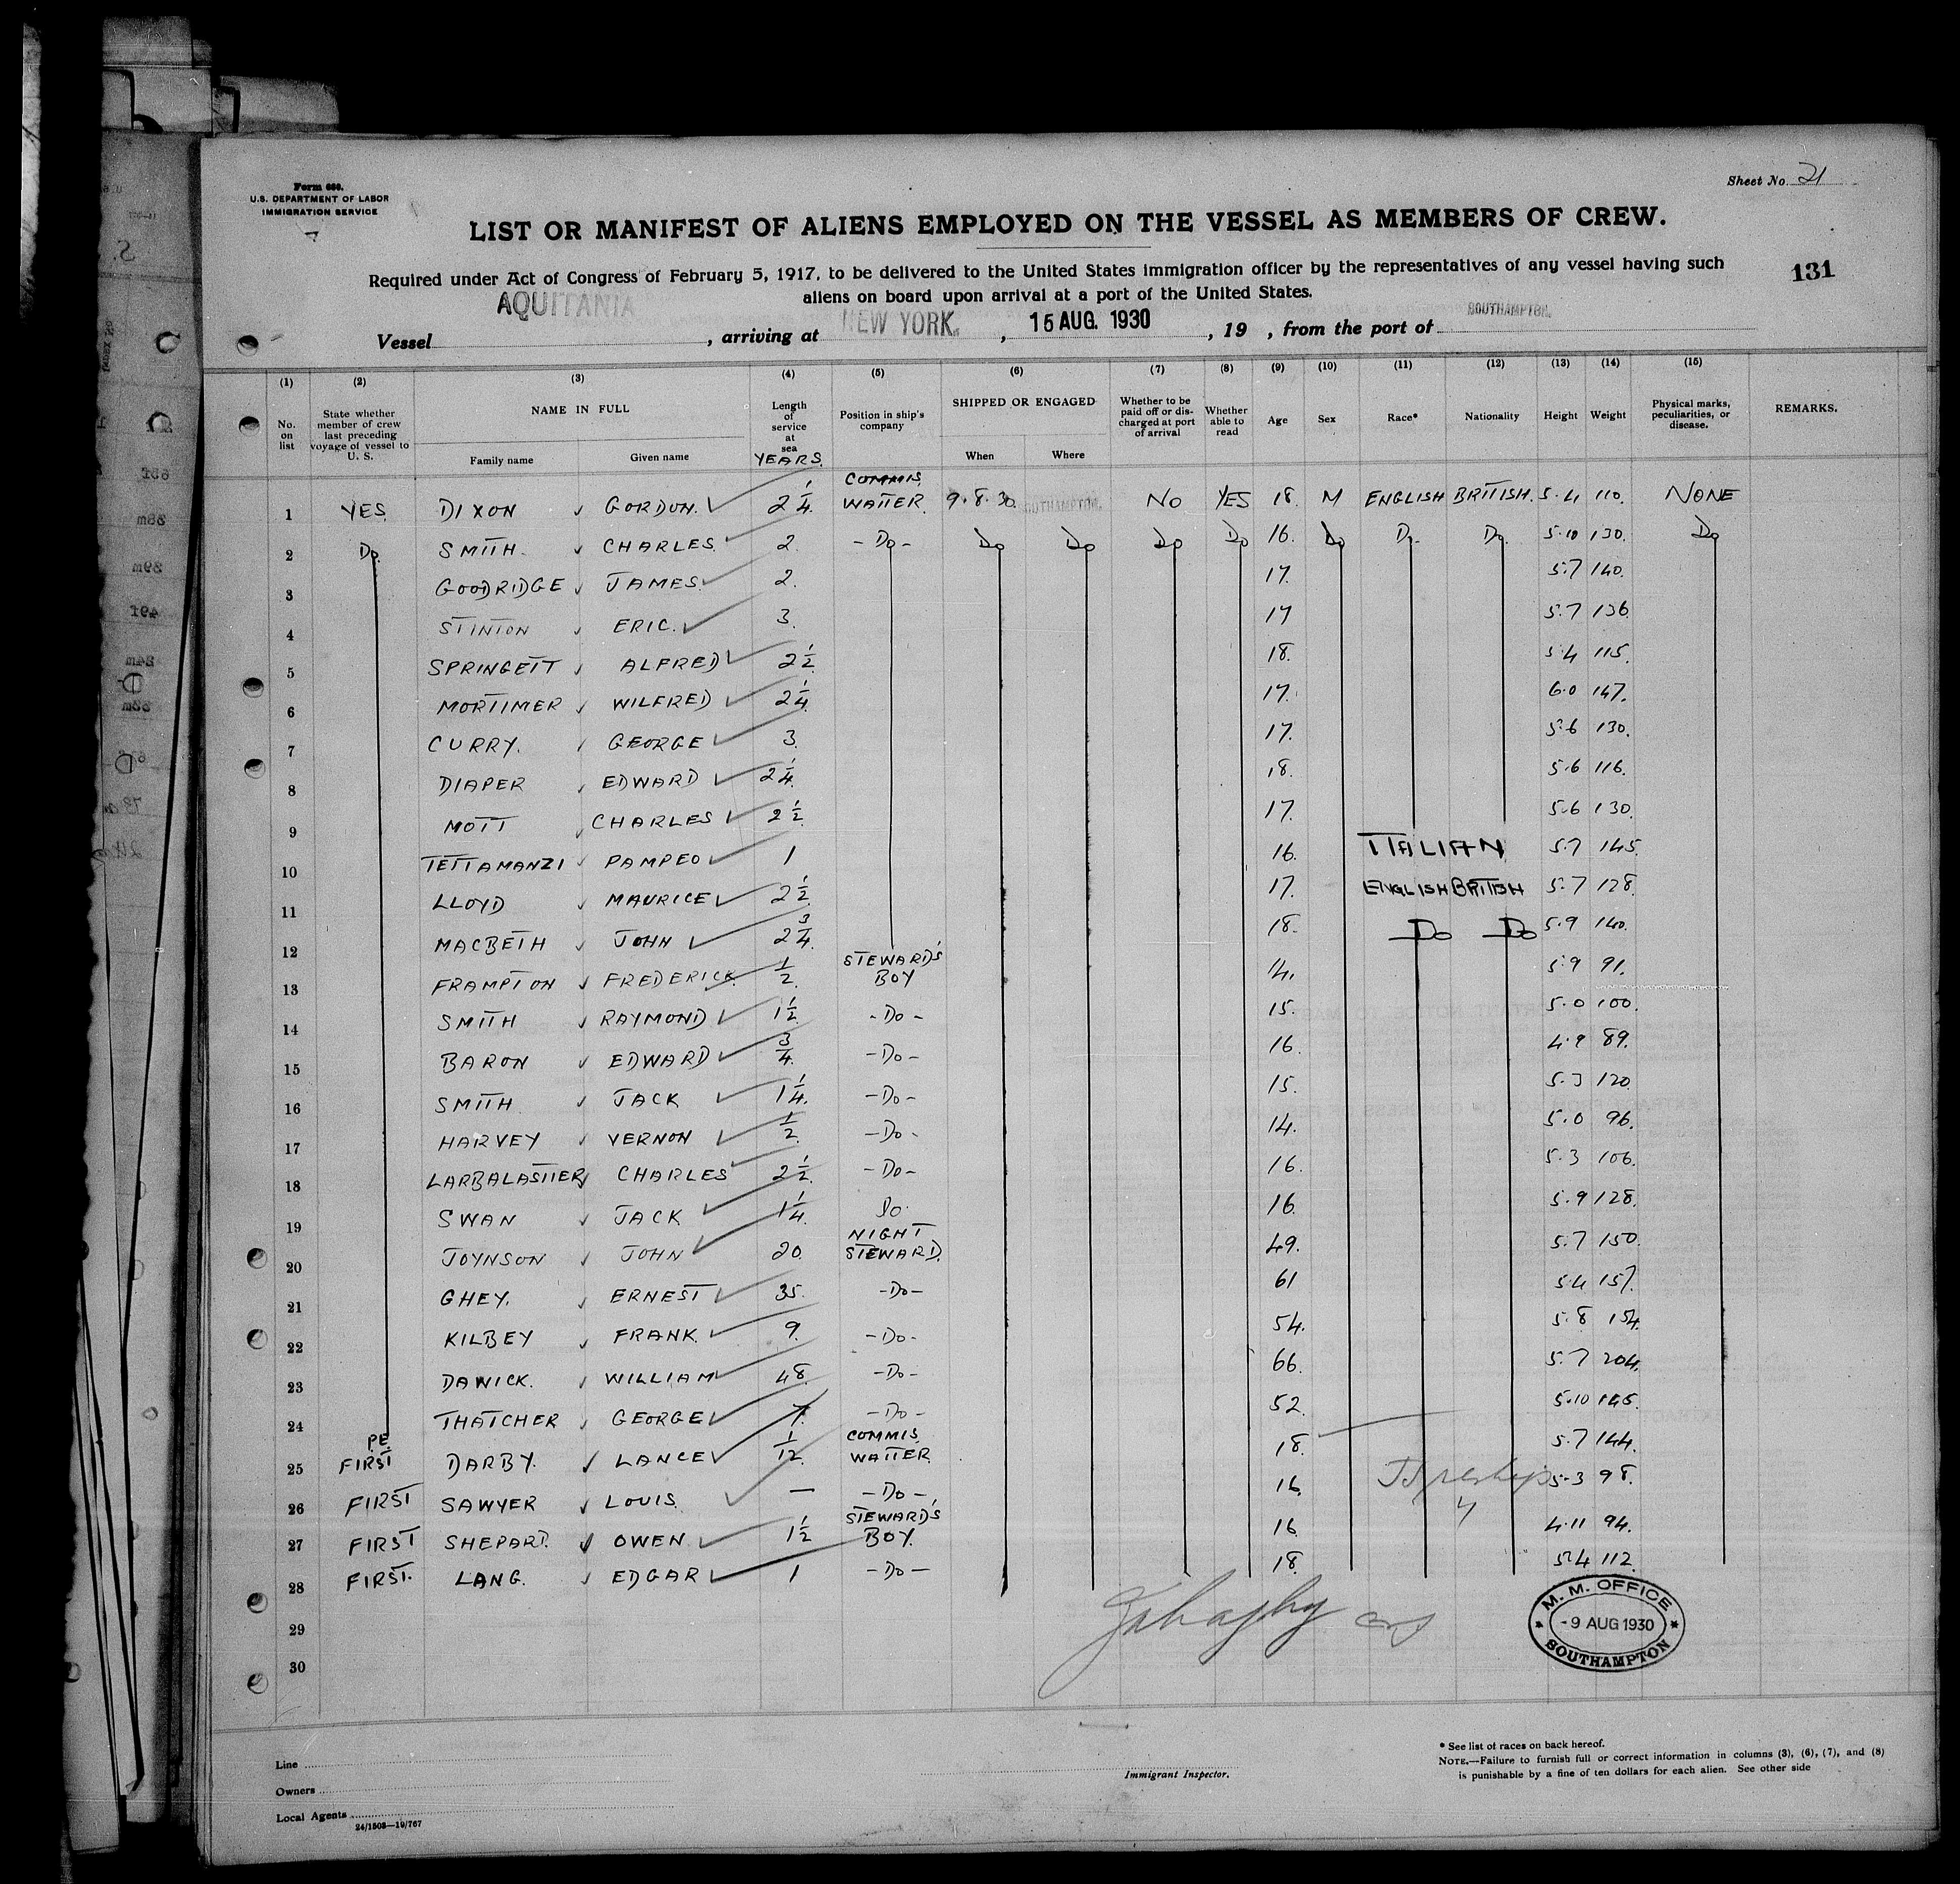 Form 680.
U.S. DEPARTMENT OF LABOR
IMMIGRATION SERVICE
Sheet No. 21
LIST OR MANIFEST OF ALIENS EMPLOYED ON THE VESSEL AS MEMBERS OF CREW.
Required under Act of Congress of February 5, 1917, to be delivered to the United States immigration officer by the representatives of any vessel having such
aliens on board upon arrival at a port of the United States.
131
Vessel AQUITANIA, arriving at NEW YORK, 15 AUG. 1930, 19 , from the port of SOUTHAMPTON.
(1) (2) (3) (4) (5) (6) (7) (8) (9) (10) (11) (12) (13) (14) (15)
No. on list
State whether member of crew last preceding voyage of vessel to U. S.
NAME IN FULL
Family name
Given name
Length of service at sea
YEARS.
Position in ship's company
SHIPPED OR ENGAGED
When
Where
Whether to be paid off or discharged at port of arrival
Whether able to read
Age
Sex
Race*
Nationality
Height
Weight
Physical marks, peculiarities, or disease.
REMARKS.
1 YES. DIXON GORDON. 2 1/4. COMMIS. WAITER. 9.8.30. SOUTHAMPTON. NO YES 18. M ENGLISH BRITISH. 5.4 110. NONE
2 Do. SMITH. CHARLES. 2. -Do- Do Do Do Do 16. Do Do. Do. 5.10 130. Do
3 GOODRIDGE JAMES. 2. 17. 5.7 140.
4 STINTON ERIC. 3. 17 5.7 136.
5 SPRINGETT ALFRED 2 1/2. 18. 5.4 115.
6 MORTIMER WILFRED 2 1/4. 17. 6.0 147.
7 CURRY. GEORGE 3. 17. 5.6 130.
8 DIAPER EDWARD 2 1/4. 18. 5.6 116.
9 MOTT CHARLES 2 1/2. 17. 5.6 130.
10 TETTAMANZI PAMPEO 1 16. ITALIAN 5.7 145.
11 LLOYD MAURICE 2 1/2. 17. ENGLISH BRITISH 5.7 128.
12 MACBETH JOHN 2 3/4. 18. Do Do 5.9 140.
13 FRAMPTON FREDERICK. 1/2. STEWARD'S BOY 14. 5.9 91.
14 SMITH RAYMOND 1 1/2. -Do- 15. 5.0 100.
15 BARON EDWARD 3/4. -Do- 16. 4.9 89.
16 SMITH. JACK 1 1/4. -Do- 15. 5.3 120.
17 HARVEY VERNON 1/2. -Do- 14. 5.0 96.
18 LARBALASTIER CHARLES 2 1/2. -Do- 16. 5.3 106.
19 SWAN JACK 1 1/4. Do. 16. 5.9 128.
20 JOYNSON JOHN 20. NIGHT STEWARD. 49. 5.7 150.
21 GHEY. ERNEST 35. -Do- 61 5.4 157.
22 KILBEY FRANK. 9. -Do- 54. 5.8 154.
23 DAWICK. WILLIAM 48. -Do- 66. 5.7 204.
24 THATCHER GEORGE 7. -Do- 52. 5.10 145.
25 PE. FIRST DARBY. LANCE 1/12. COMMIS. WAITER. 18. 5.7 144.
26 FIRST SAWYER LOUIS. — -Do- 16. 5.3 98.
27 FIRST SHEPARD. OWEN. 1 1/2 STEWARD'S BOY. 16. 4.11 94.
28 FIRST. LANG. EDGAR 1 -Do- 18. 5.4 112.
29
30
M. M. OFFICE
-9 AUG 1930
SOUTHAMPTON
Line
Owners
Local Agents
24/1508—19/767
Immigrant Inspector.
* See list of races on back hereof.
NOTE.—Failure to furnish full or correct information in columns (3), (6), (7), and (8)
is punishable by a fine of ten dollars for each alien. See other side